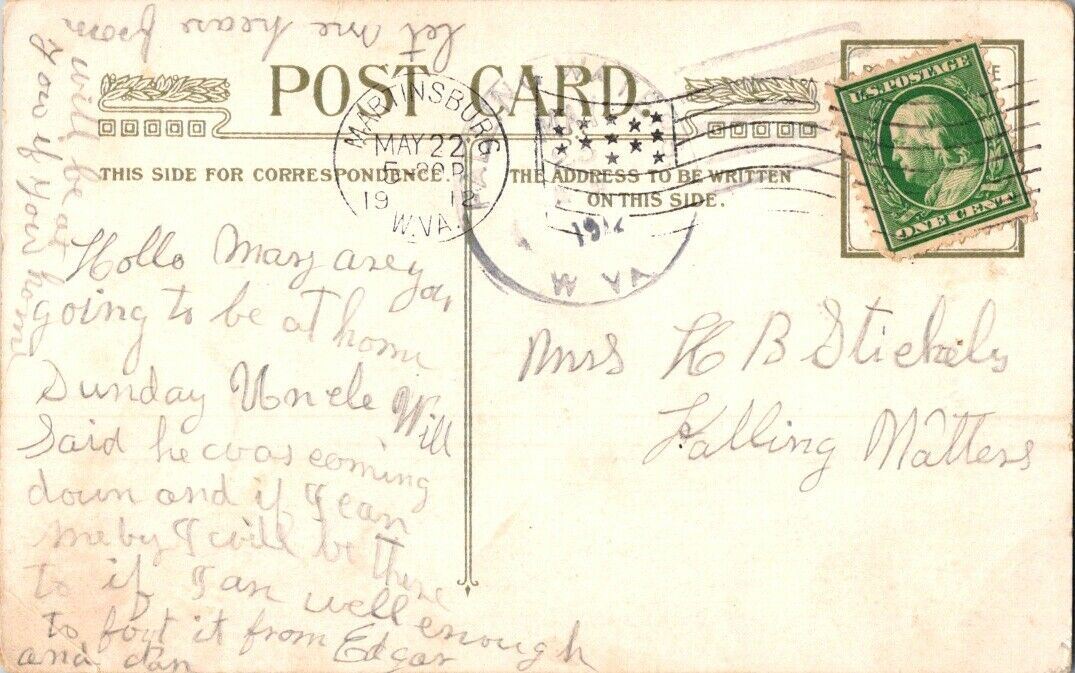 POST CARD.
THIS SIDE FOR CORRESPONDENCE.
THE ADDRESS TO BE WRITTEN
ON THIS SIDE.
MARTINSBURG
MAY 22
5
19 12
W.VA.
191
W VA
U.S. POSTAGE
ONE CENT
Hollo Mary arey you
going to be at home
Sunday Uncle Will
Said he was coming
down and if I can
meby I will be there
to if I an well enough
to foot it from Edgar
and dan
let me hear from
you if you
will be at home
Mrs H B Stickely
Falling Watters